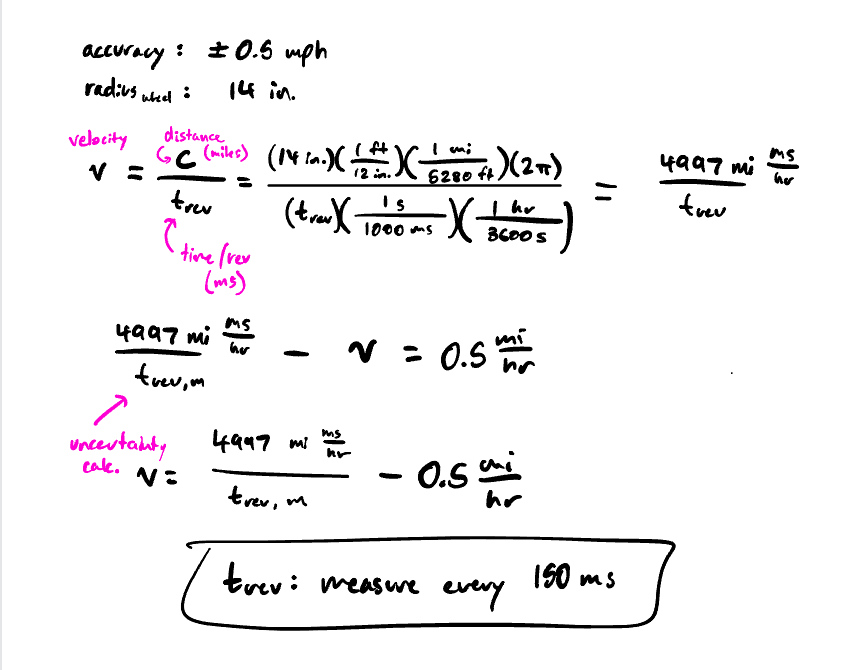 accuracy : ± 0.5 mph
radius wheel : 14 in.
velocity distance
v = C (miles) / t_rev = (14 in.)(1 ft / 12 in.)(1 mi / 5280 ft)(2π) / (t_rev)(1 s / 1000 ms)(1 hr / 3600 s) = 4997 mi ms/hr / t_rev
time/rev
(ms)
4997 mi ms/hr / t_rev,m - v = 0.5 mi/hr
uncertainty
calc.
v = 4997 mi ms/hr / t_rev, m - 0.5 mi/hr
t_rev : measure every 150 ms